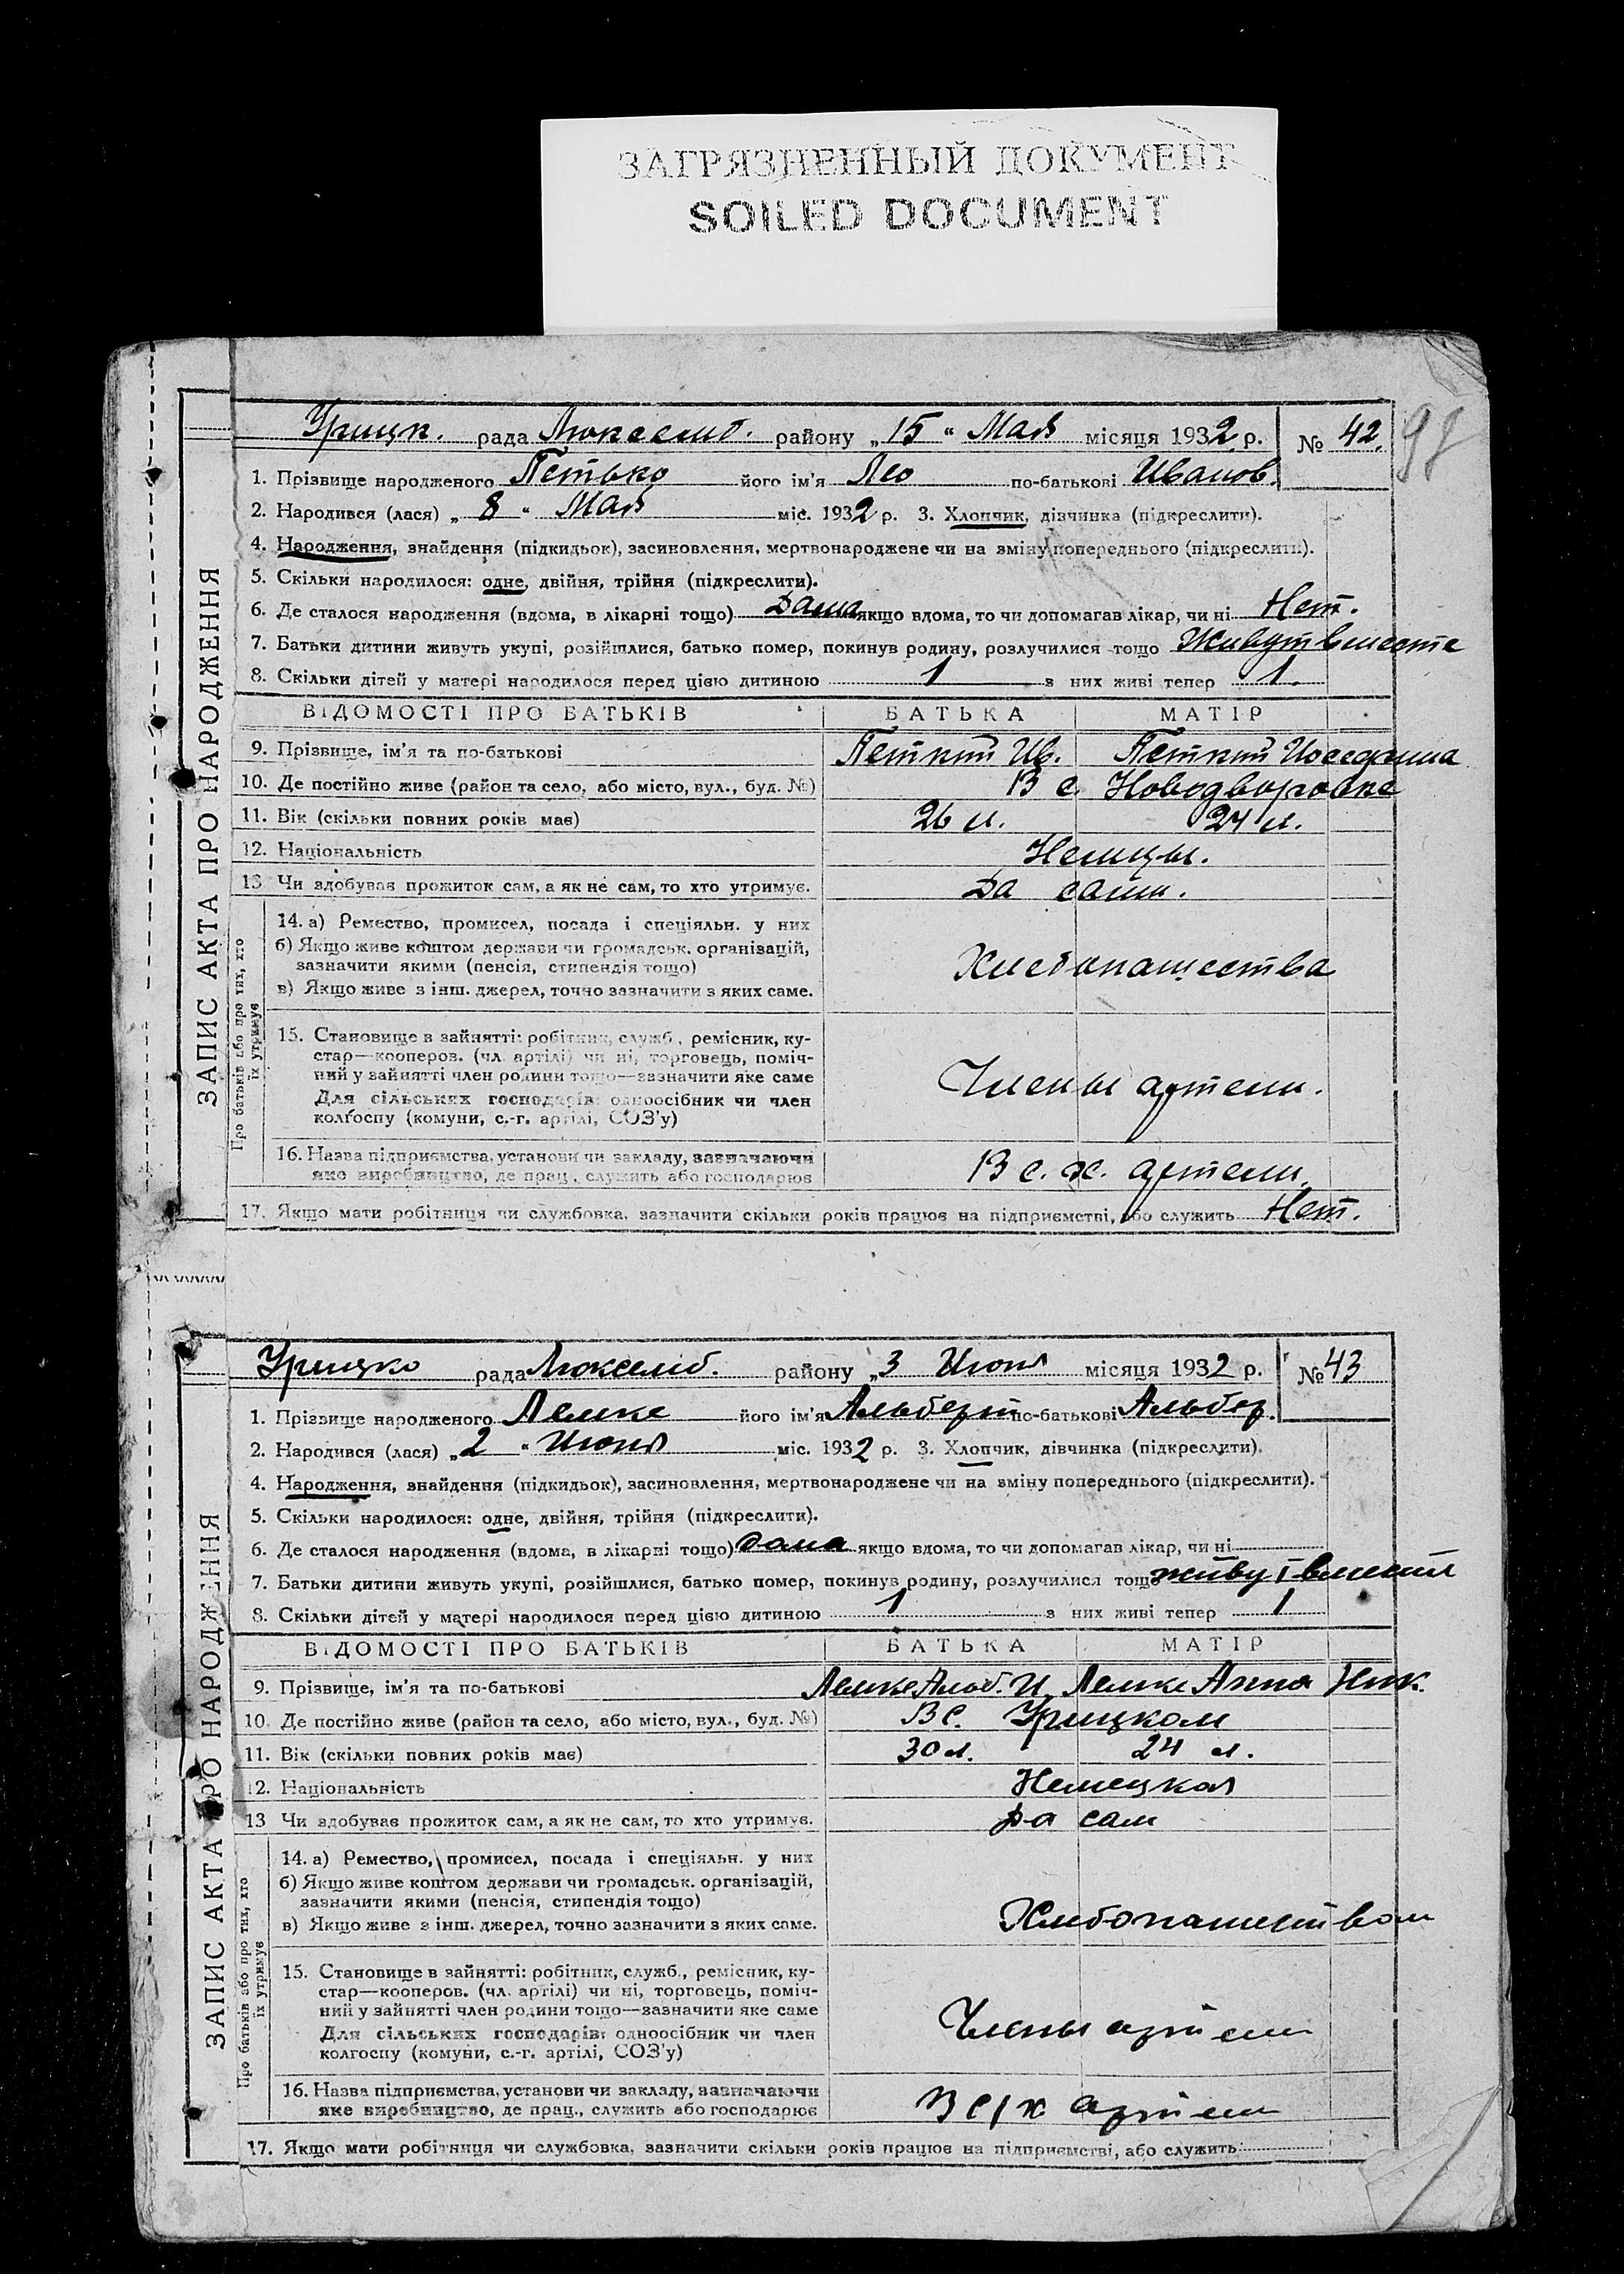 ЗАГРЯЗНЕННЫЙ ДОКУМЕНТ
SOILED DOCUMENT
98
ЗАПИС АКТА ПРО НАРОДЖЕННЯ
Урицк. рада Люксемб. району „15“ Мая місяця 1932 р. № 42.
1. Прізвище народженого Петько його ім'я Лео по-батькові Иванов.
2. Народився (лася) „8“ Мая міс. 1932 р. 3. Хлопчик, дівчинка (підкреслити).
4. Народження, знайдення (підкидьок), засиновлення, мертвонароджене чи на зміну попереднього (підкреслити).
5. Скільки народилося: одне, двійня, трійня (підкреслити).
6. Де сталося народження (вдома, в лікарні тощо) Дома якщо вдома, то чи допомагав лікар, чи ні Нет.
7. Батьки дитини живуть укупі, розійшлися, батько помер, покинув родину, розлучилися тощо Живут вместе
8. Скільки дітей у матері народилося перед цією дитиною 1 з них живі тепер 1.
ВІДОМОСТІ ПРО БАТЬКІВ БАТЬКА МАТІР
9. Прізвище, ім'я та по-батькові Петкий Ив. Петкий
10. Де постійно живе (район та село, або місто, вул., буд. №) В с Новодворовке
11. Вік (скільки повних років має) 26 л. 24 л.
12. Національність Немцы.
13. Чи здобуває прожиток сам, а як не сам, то хто утримує. Да сами.
Про батьків або про тих, хто
їх утримує
14. а) Ремество, промисел, посада і спеціяльн. у них
б) Якщо живе коштом держави чи громадськ. організацій,
зазначити якими (пенсія, стипендія тощо)
в) Якщо живе з інш. джерел, точно зазначити з яких саме.
Хлебопашества
15. Становище в зайнятті: робітник, служб., ремісник, ку-
стар—кооперов. (чл. артілі) чи ні, торговець, поміч-
ний у зайнятті член родини тощо—зазначити яке саме
Для сільських господарів: одноосібник чи член
колгоспу (комуни, с.-г. артілі, СОЗ'у)
Члены артели.
16. Назва підприємства, установи чи закладу, зазначаючи
яке виробництво, де прац., служить або господарює
В с. х. артели.
17. Якщо мати робітниця чи службовка, зазначити скільки років працює на підприємстві, або служить Нет.
ЗАПИС АКТА ПРО НАРОДЖЕННЯ
Урицко рада Люксемб. району „3 Июня місяця 1932 р. № 43
1. Прізвище народженого Лемке його ім'я Альберт по-батькові Альбер.
2. Народився (лася) „2“ Июня міс. 1932 р. 3. Хлопчик, дівчинка (підкреслити).
4. Народження, знайдення (підкидьок), засиновлення, мертвонароджене чи на зміну попереднього (підкреслити).
5. Скільки народилося: одне, двійня, трійня (підкреслити).
6. Де сталося народження (вдома, в лікарні тощо) дома якщо вдома, то чи допомагав лікар, чи ні
7. Батьки дитини живуть укупі, розійшлися, батько помер, покинув родину, розлучилися тощо живут вместе
8. Скільки дітей у матері народилося перед цією дитиною 1 з них живі тепер 1
ВІДОМОСТІ ПРО БАТЬКІВ БАТЬКА МАТІР
9. Прізвище, ім'я та по-батькові Лемке Альб. И. Лемке Анна Ник.
10. Де постійно живе (район та село, або місто, вул., буд. №) В с. Урицком
11. Вік (скільки повних років має) 30 л. 24 л.
12. Національність Немецкая
13 Чи здобуває прожиток сам, а як не сам, то хто утримує. Да сам
Про батьків або про тих, хто
їх утримує
14. а) Ремество, промисел, посада і спеціяльн. у них
б) Якщо живе коштом держави чи громадськ. організацій,
зазначити якими (пенсія, стипендія тощо)
в) Якщо живе з інш. джерел, точно зазначити з яких саме.
Хлебопашеством
15. Становище в зайнятті: робітник, служб., ремісник, ку-
стар—кооперов. (чл. артілі) чи ні, торговець, поміч-
ний у зайнятті член родини тощо—зазначити яке саме
Для сільських господарів: одноосібник чи член
колгоспу (комуни, с.-г. артілі, СОЗ'у)
Члены артели
16. Назва підприємства, установи чи закладу, зазначаючи
яке виробництво, де прац., служить або господарює
В с/х артели
17. Якщо мати робітниця чи службовка, зазначити скільки років працює на підприємстві, або служить